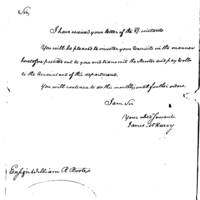 Sir,
I have received your letter of the 9 instant
You will be pleased to muster your Recruits in the manner
heretofore pointed out to you and transmit the Muster and pay Rolls
to the Accountant of this department.
You will continue to do this monthly until further orders.
I am Sir
Your Obed Servant
James McHenry
Ensign William R Boote